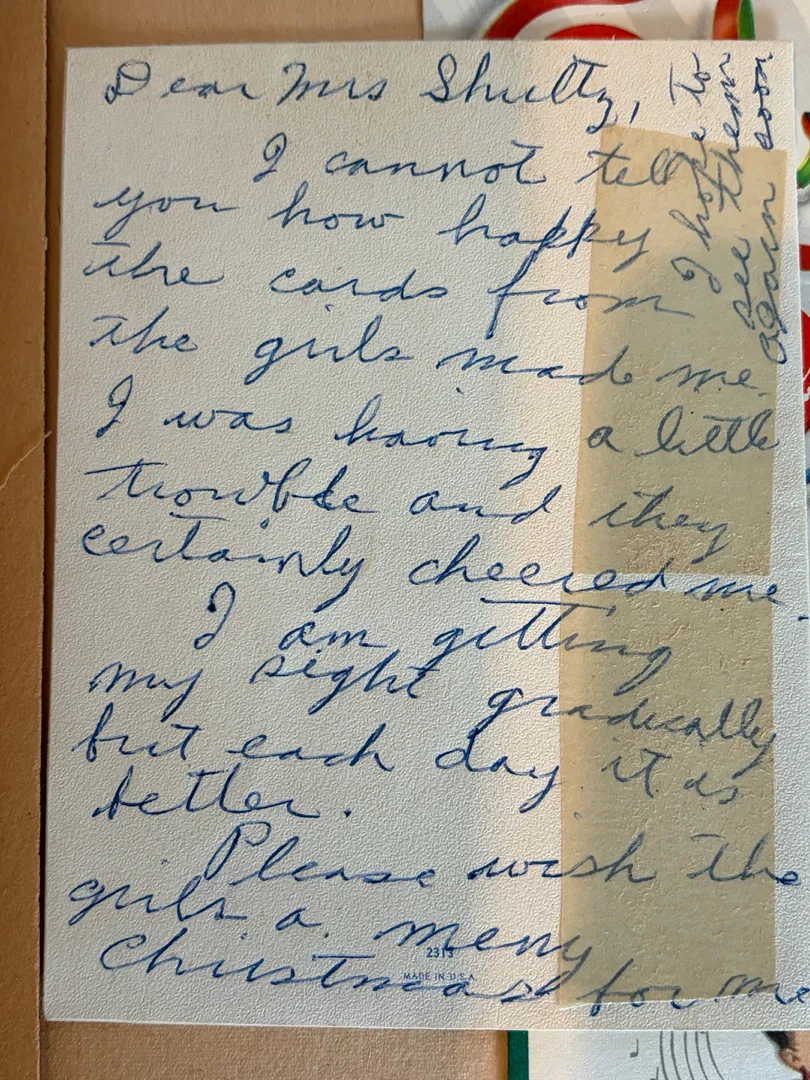 Dear Mrs Shultz,
I cannot tell
you how happy
the cards from
the girls made me.
I was having a little
trouble and they
certainly cheered me.
I am getting
my sight gradically
but each day it is
better.
Please wish the
girls a merry
Christmas for me
2313
MADE IN U.S.A.
I hope to
see them
again soon